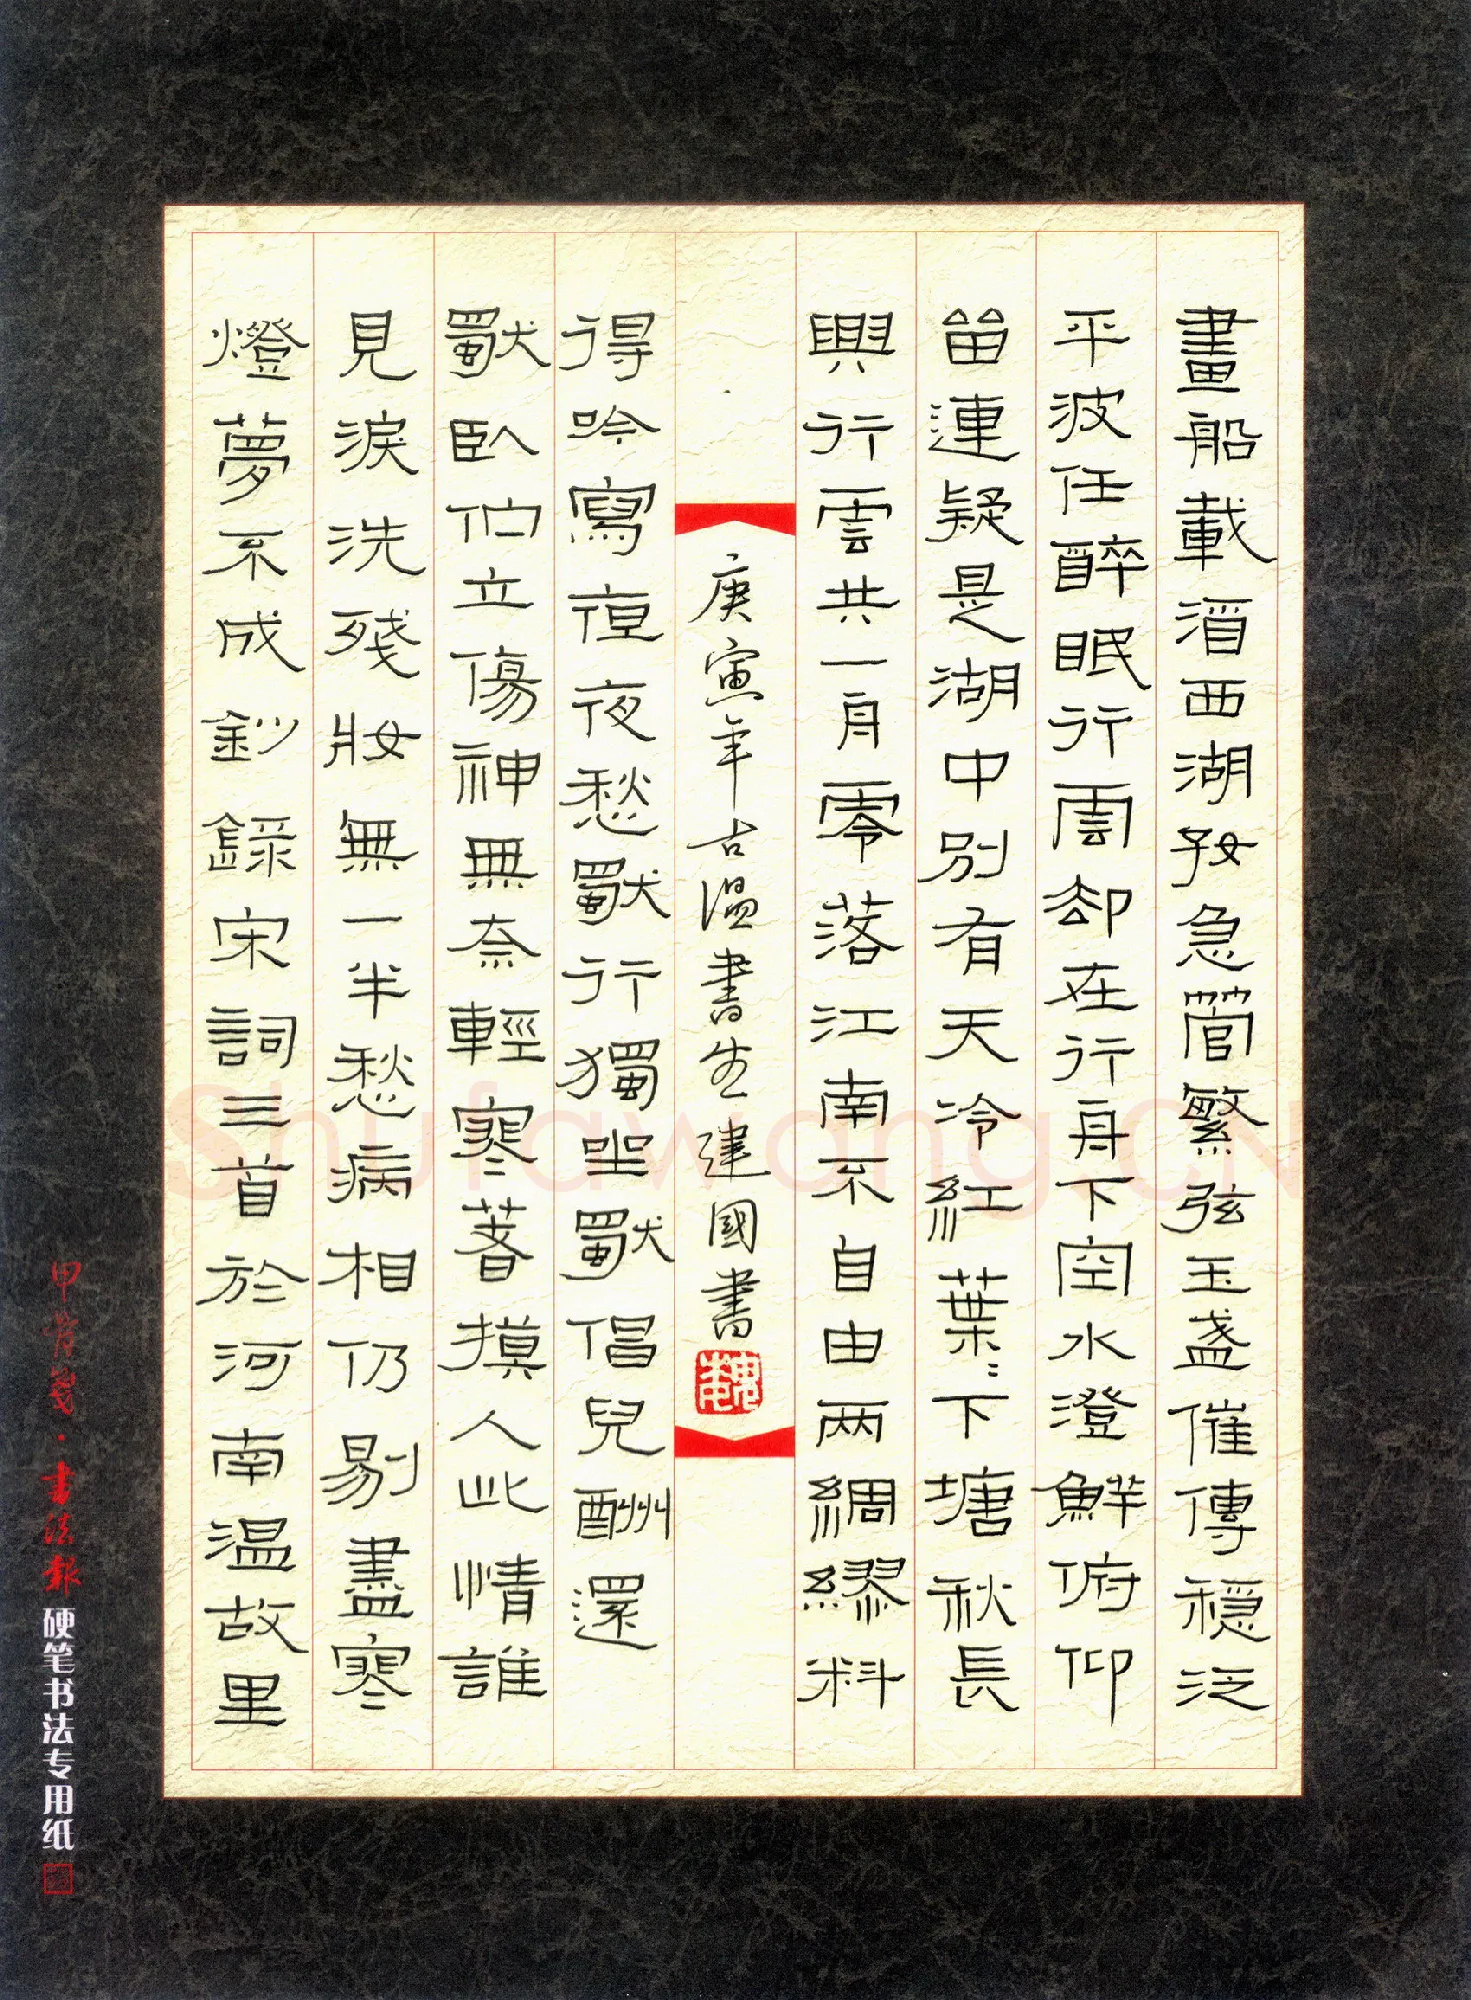 畫船載酒西湖好急管繁弦玉盞催傳穩泛
平波任醉眠行雲却在行舟下空水澄鮮俯仰
留連疑是湖中別有天冷紅葉葉下塘秋長
與行雲共一舟零落江南不自由兩綢繆料
得吟鸞夜夜愁獨行獨坐獨倡獨酬還
獨臥佇立傷神無奈輕寒著摸人此情誰
見淚洗殘妝無一半愁病相仍剔盡寒
燈夢不成鈔錄宋詞三首於河南温故里
庚寅年古温書生建國書
魏
甲骨文·書法報硬笔书法专用纸
Shufawang.CN